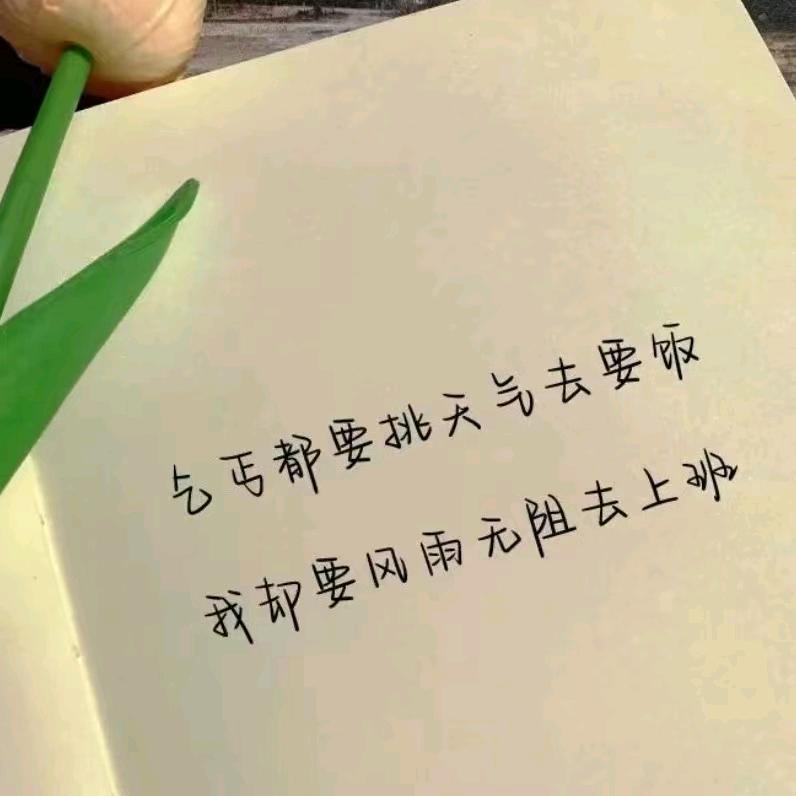 乞丐都要挑天气去要饭
我却要风雨无阻去上班